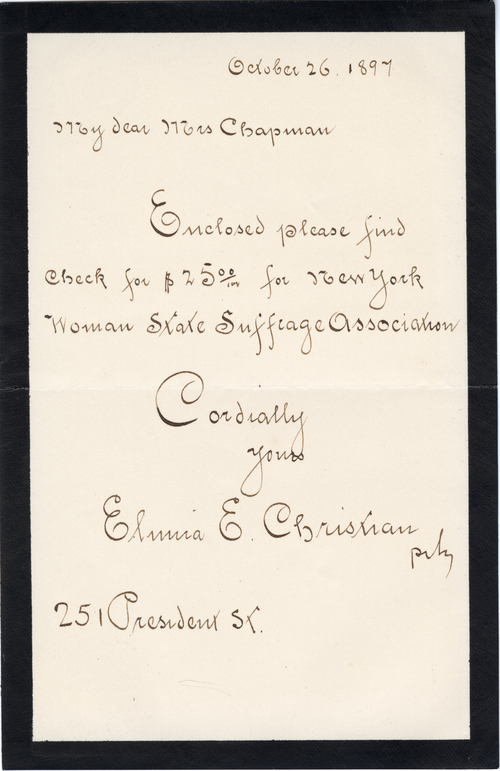 October 26. 1897
My dear Mrs Chapman
Enclosed please find
Check for $25 00/100 for New York
Woman State Suffrage Association
Cordially
yours
E. Christian
251 President St.